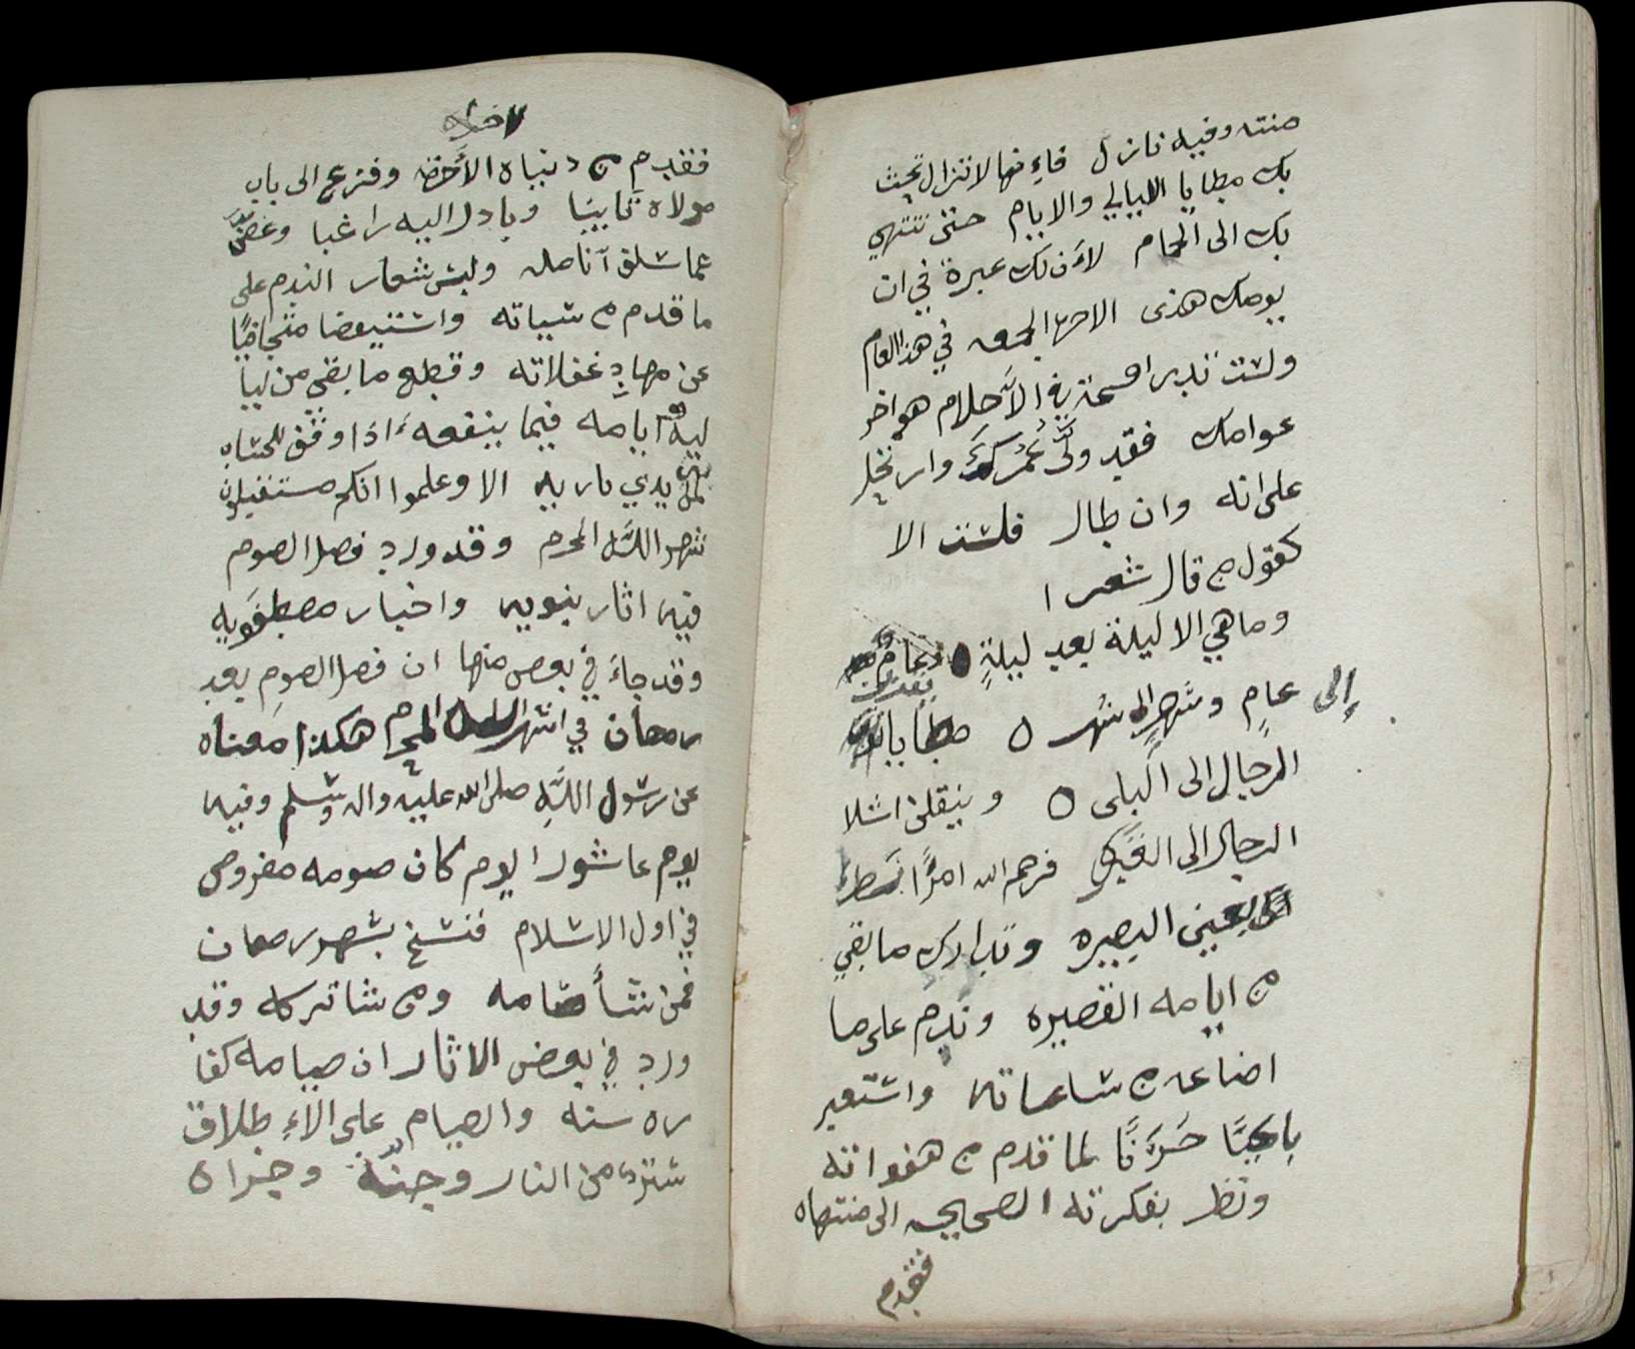 منته وفيه نازل فإنها لا تزال تحث
بك مطايا الليالي والايام حتى تنتهي
بك الى الحمام لأن لك عبرة في ان
يومك هذى الاخر الجمعه في هذا العام
ولست تدير الأحلام هو اخر
عوامك فقد ولَّى عُمرك وارتحل
على انه وان طال فلست الا
كقول من قال شعرا
وما هي الا ليلة بعد ليلةٍ وعامٌ
إلى
عامٍ وشهرٍ الى شهر ٥ مطايا
الرجال الى البلى ٥ وينقلن اشلا
الرجال الى القبر فرحم الله امرًا نظر
بعين البصيره وتدارك ما بقي
من ايامه القصيره وندم على ما
اضاعه من ساعاته واستعبر
باكيًا حزنًا لما قدم من هفواته
ونظر بفكرته الصحيحه الى منتهاه
فقدم
فقدم من دنياه لأخراه وفزع الى باب
مولاه تايبًا وبادر اليه راغبا وعض
عما سلف أنامله ولبس شعار الندم على
ما قدم من سياته واستيقضا متجافيًا
عن مهادِ غفلاته وقطع ما بقي من ليا
ليه وايامه فيما ينفعه اذا وقف للحساب
بين يدي باريه الا وعلموا انكم مستقبلون
شهر اللّه المحرم وقد ورد فضل الصوم
فيه اثار نبويه واخبار مصطفويه
وقد جاء في بعض منها ان فضل الصوم بعد
رمضان في شهر الله المحرم هكذا معناه
عن رسول اللّه صلى الله عليه واله وسلم وفيه
يوم عاشورا يوم كان صومه مفروض
في اول الاسلام فنسخ بشهر رمضان
فمن شأ صامه ومن شا تركه وقد
ورد في بعض الاثار ان صيامه كفا
ره سنه والصيام على الاءِطلاق
ستره من النار وجنّه وجزاه